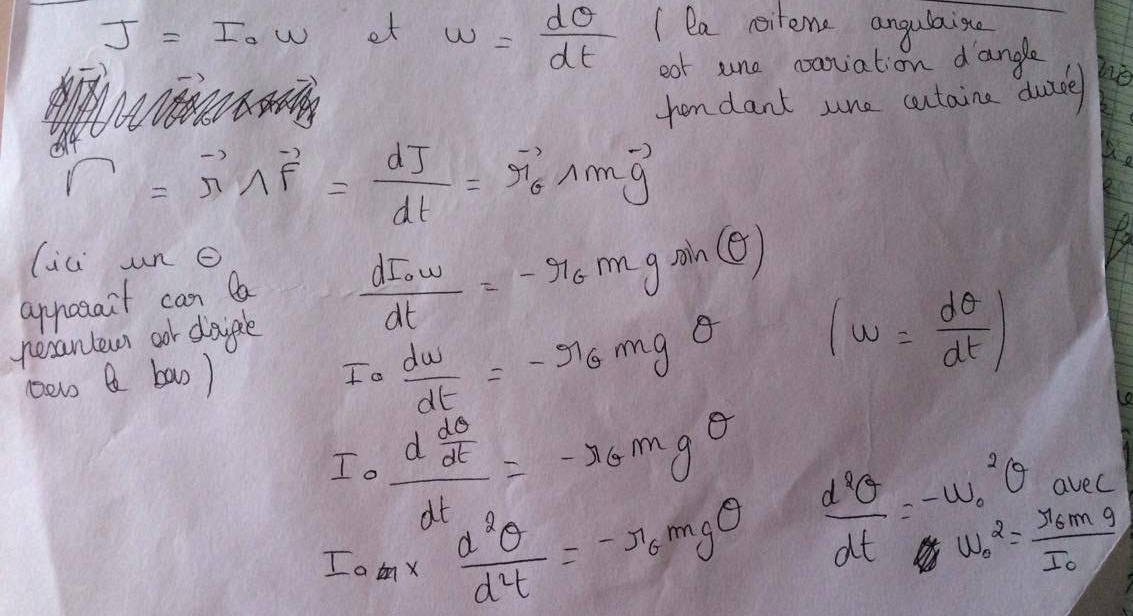 J = I₀ w et w = dθ/dt ( la vitesse angulaire
est une variation d'angle
pendant une certaine durée)
Γ = r⃗ ∧ F⃗ = dJ/dt = r⃗_G ∧ m g⃗
(ici un ⊖
apparaît car la
pesanteur est dirigée
vers le bas)
dI₀w/dt = - r_G m g sin(θ)
I₀ dw/dt = - r_G m g θ (w = dθ/dt)
I₀ d dθ/dt / dt = - r_G m g θ
I₀ x d²θ/d²t = - r_G m g θ
d²θ/dt = - w₀² θ avec
w₀² = r_G m g / I₀